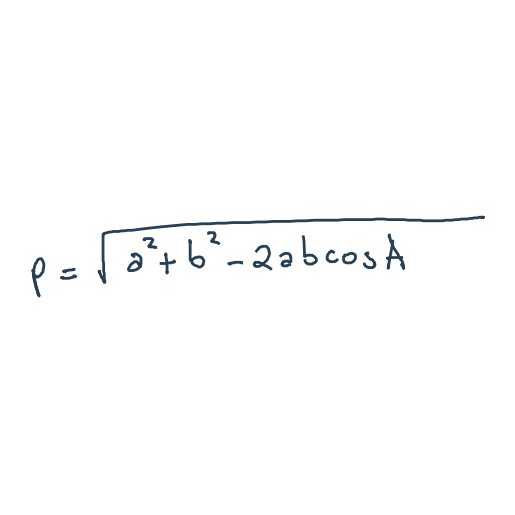 p = √a² + b² - 2abcosA